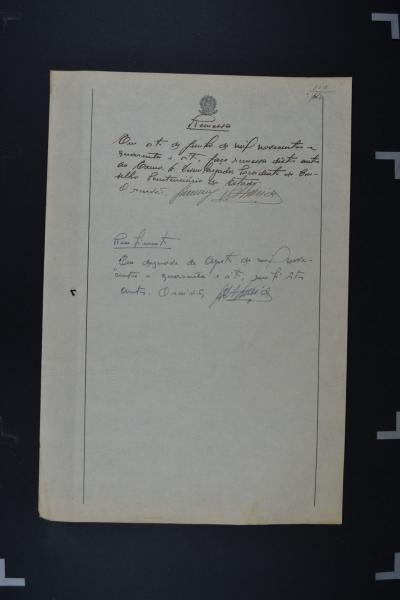 Remessa
Em oito de Junho de mil novecentos e
quarenta e oito faço remessa destes autos
ao Exmo. Sr. Desembargador Presidente do Con-
selho Penitenciário do Estado.
O escrivão,
Recebimento
Em dezenove de Agosto de mil nove-
centos e quarenta e oito, recebi êstes
autos. O escrivão,